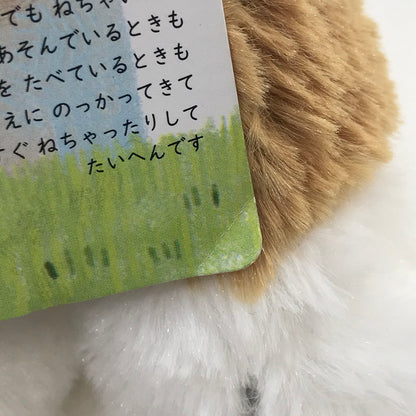 でも ねちゃい
あそんでいるときも
を たべているときも
えに のっかってきて
ぐ ねちゃったりして
たいへんです